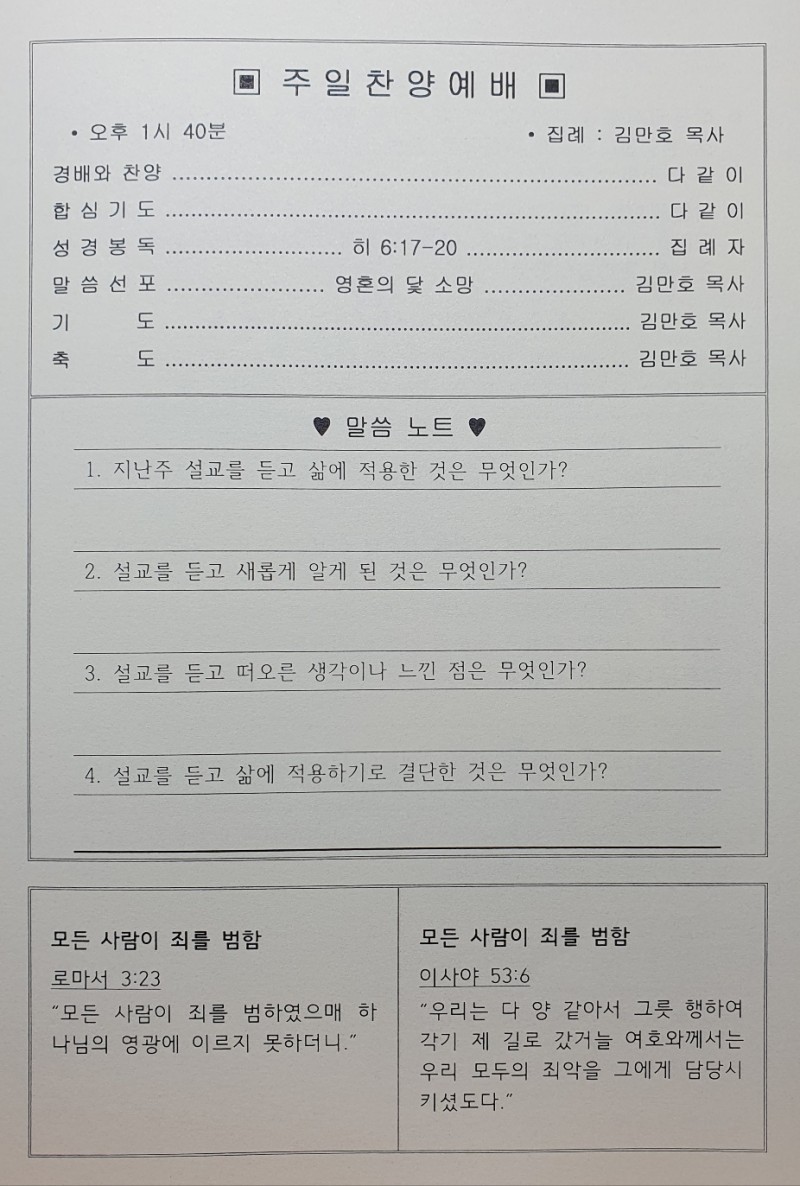 ▣ 주일찬양예배 ▣
• 오후 1시 40분 • 집례 : 김만호 목사
경배와 찬양 ........................................ 다 같 이
합 심 기 도 ........................................ 다 같 이
성 경 봉 독 .................... 히 6:17-20 .................... 집 례 자
말 씀 선 포 .................... 영혼의 닻 소망 .................... 김만호 목사
기 도 ........................................ 김만호 목사
축 도 ........................................ 김만호 목사
♥ 말씀 노트 ♥
1. 지난주 설교를 듣고 삶에 적용한 것은 무엇인가?
2. 설교를 듣고 새롭게 알게 된 것은 무엇인가?
3. 설교를 듣고 떠오른 생각이나 느낀 점은 무엇인가?
4. 설교를 듣고 삶에 적용하기로 결단한 것은 무엇인가?
모든 사람이 죄를 범함
로마서 3:23
“모든 사람이 죄를 범하였으매 하
나님의 영광에 이르지 못하더니.”
모든 사람이 죄를 범함
이사야 53:6
“우리는 다 양 같아서 그릇 행하여
각기 제 길로 갔거늘 여호와께서는
우리 모두의 죄악을 그에게 담당시
키셨도다.”